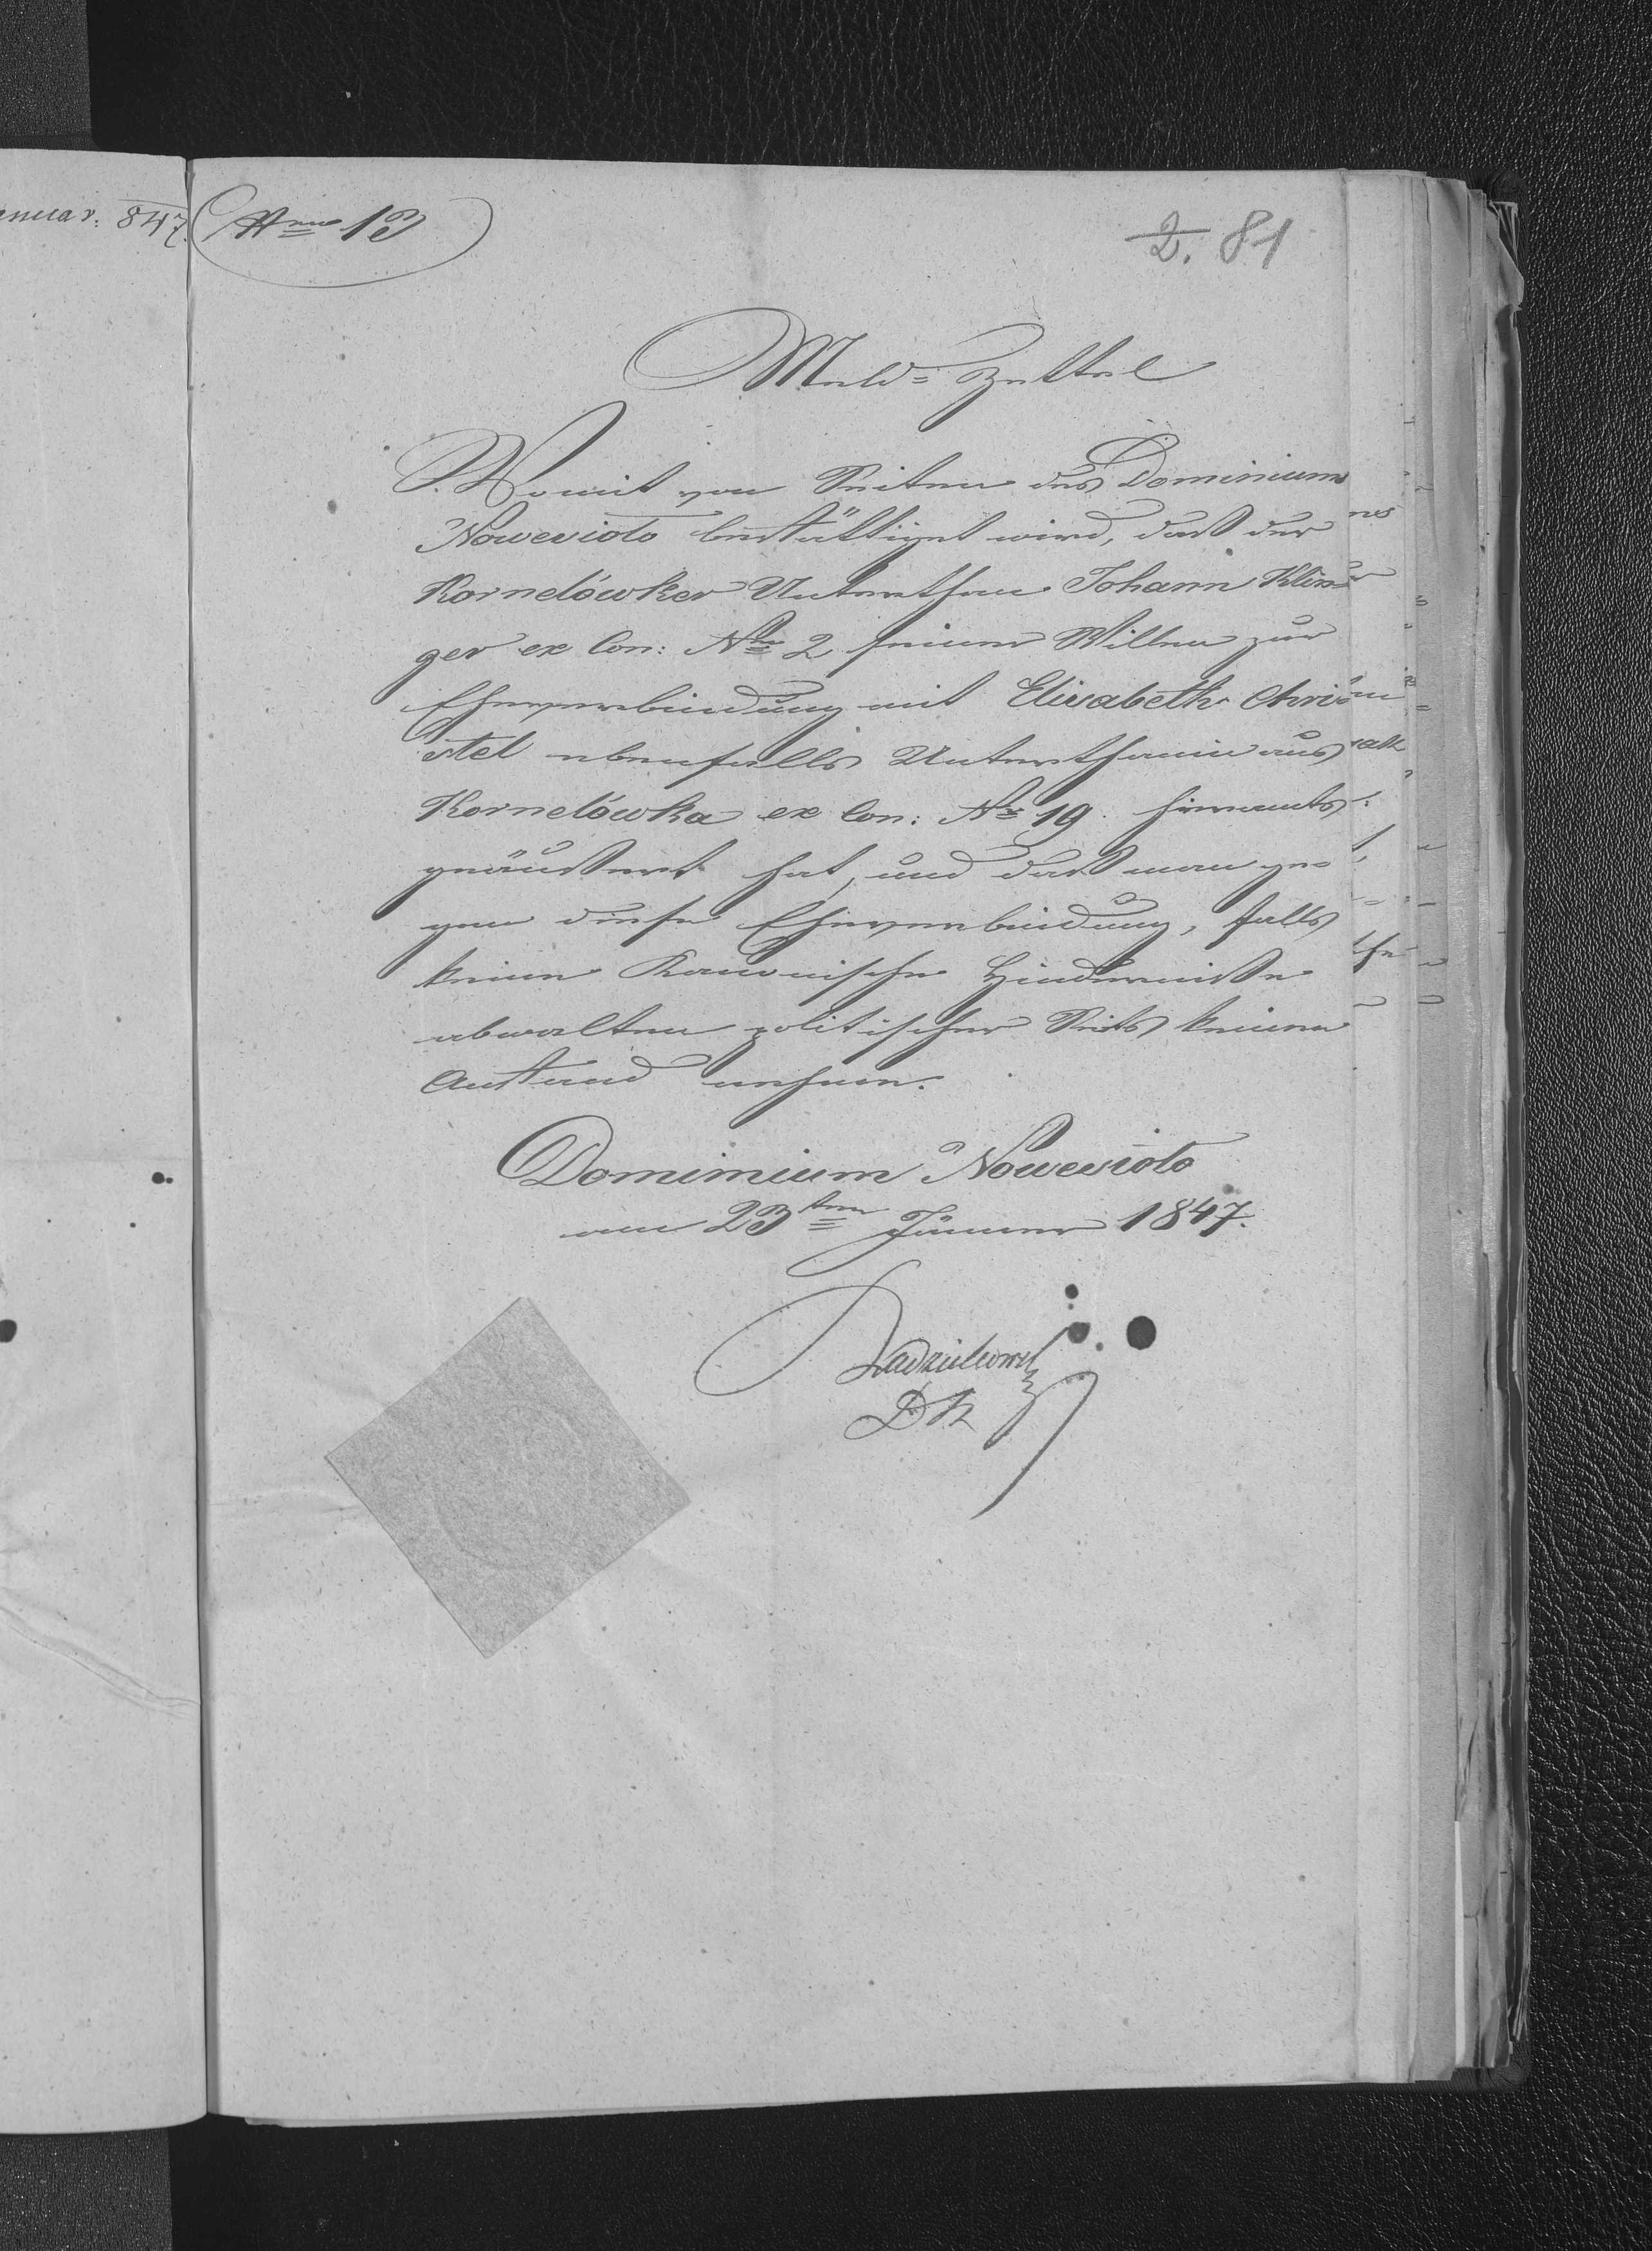 anuar. 847.
Nro 13
2. 81
Meld-Zettel
Womit von Seiten des Dominiums
Nowesioło bestättiget wird, daß der
Kornelówker Unterthan Johann Klin-
ger ex Con: Nro 2 seinen Willen zur
Eheverbindung mit Elisabeth Chri-
stel ebenfalls Unterthanin aus
Kornelówka ex Con: Nro 19. hieramts
geäußert hat, und daß man ge-
gen diese Eheverbindung, falls
keine Kanonische Hinderniße
obwalten politischer Seits keinen
Anstand nehme.
Dominium Nowesioło
am 23ten Jänner 1847.